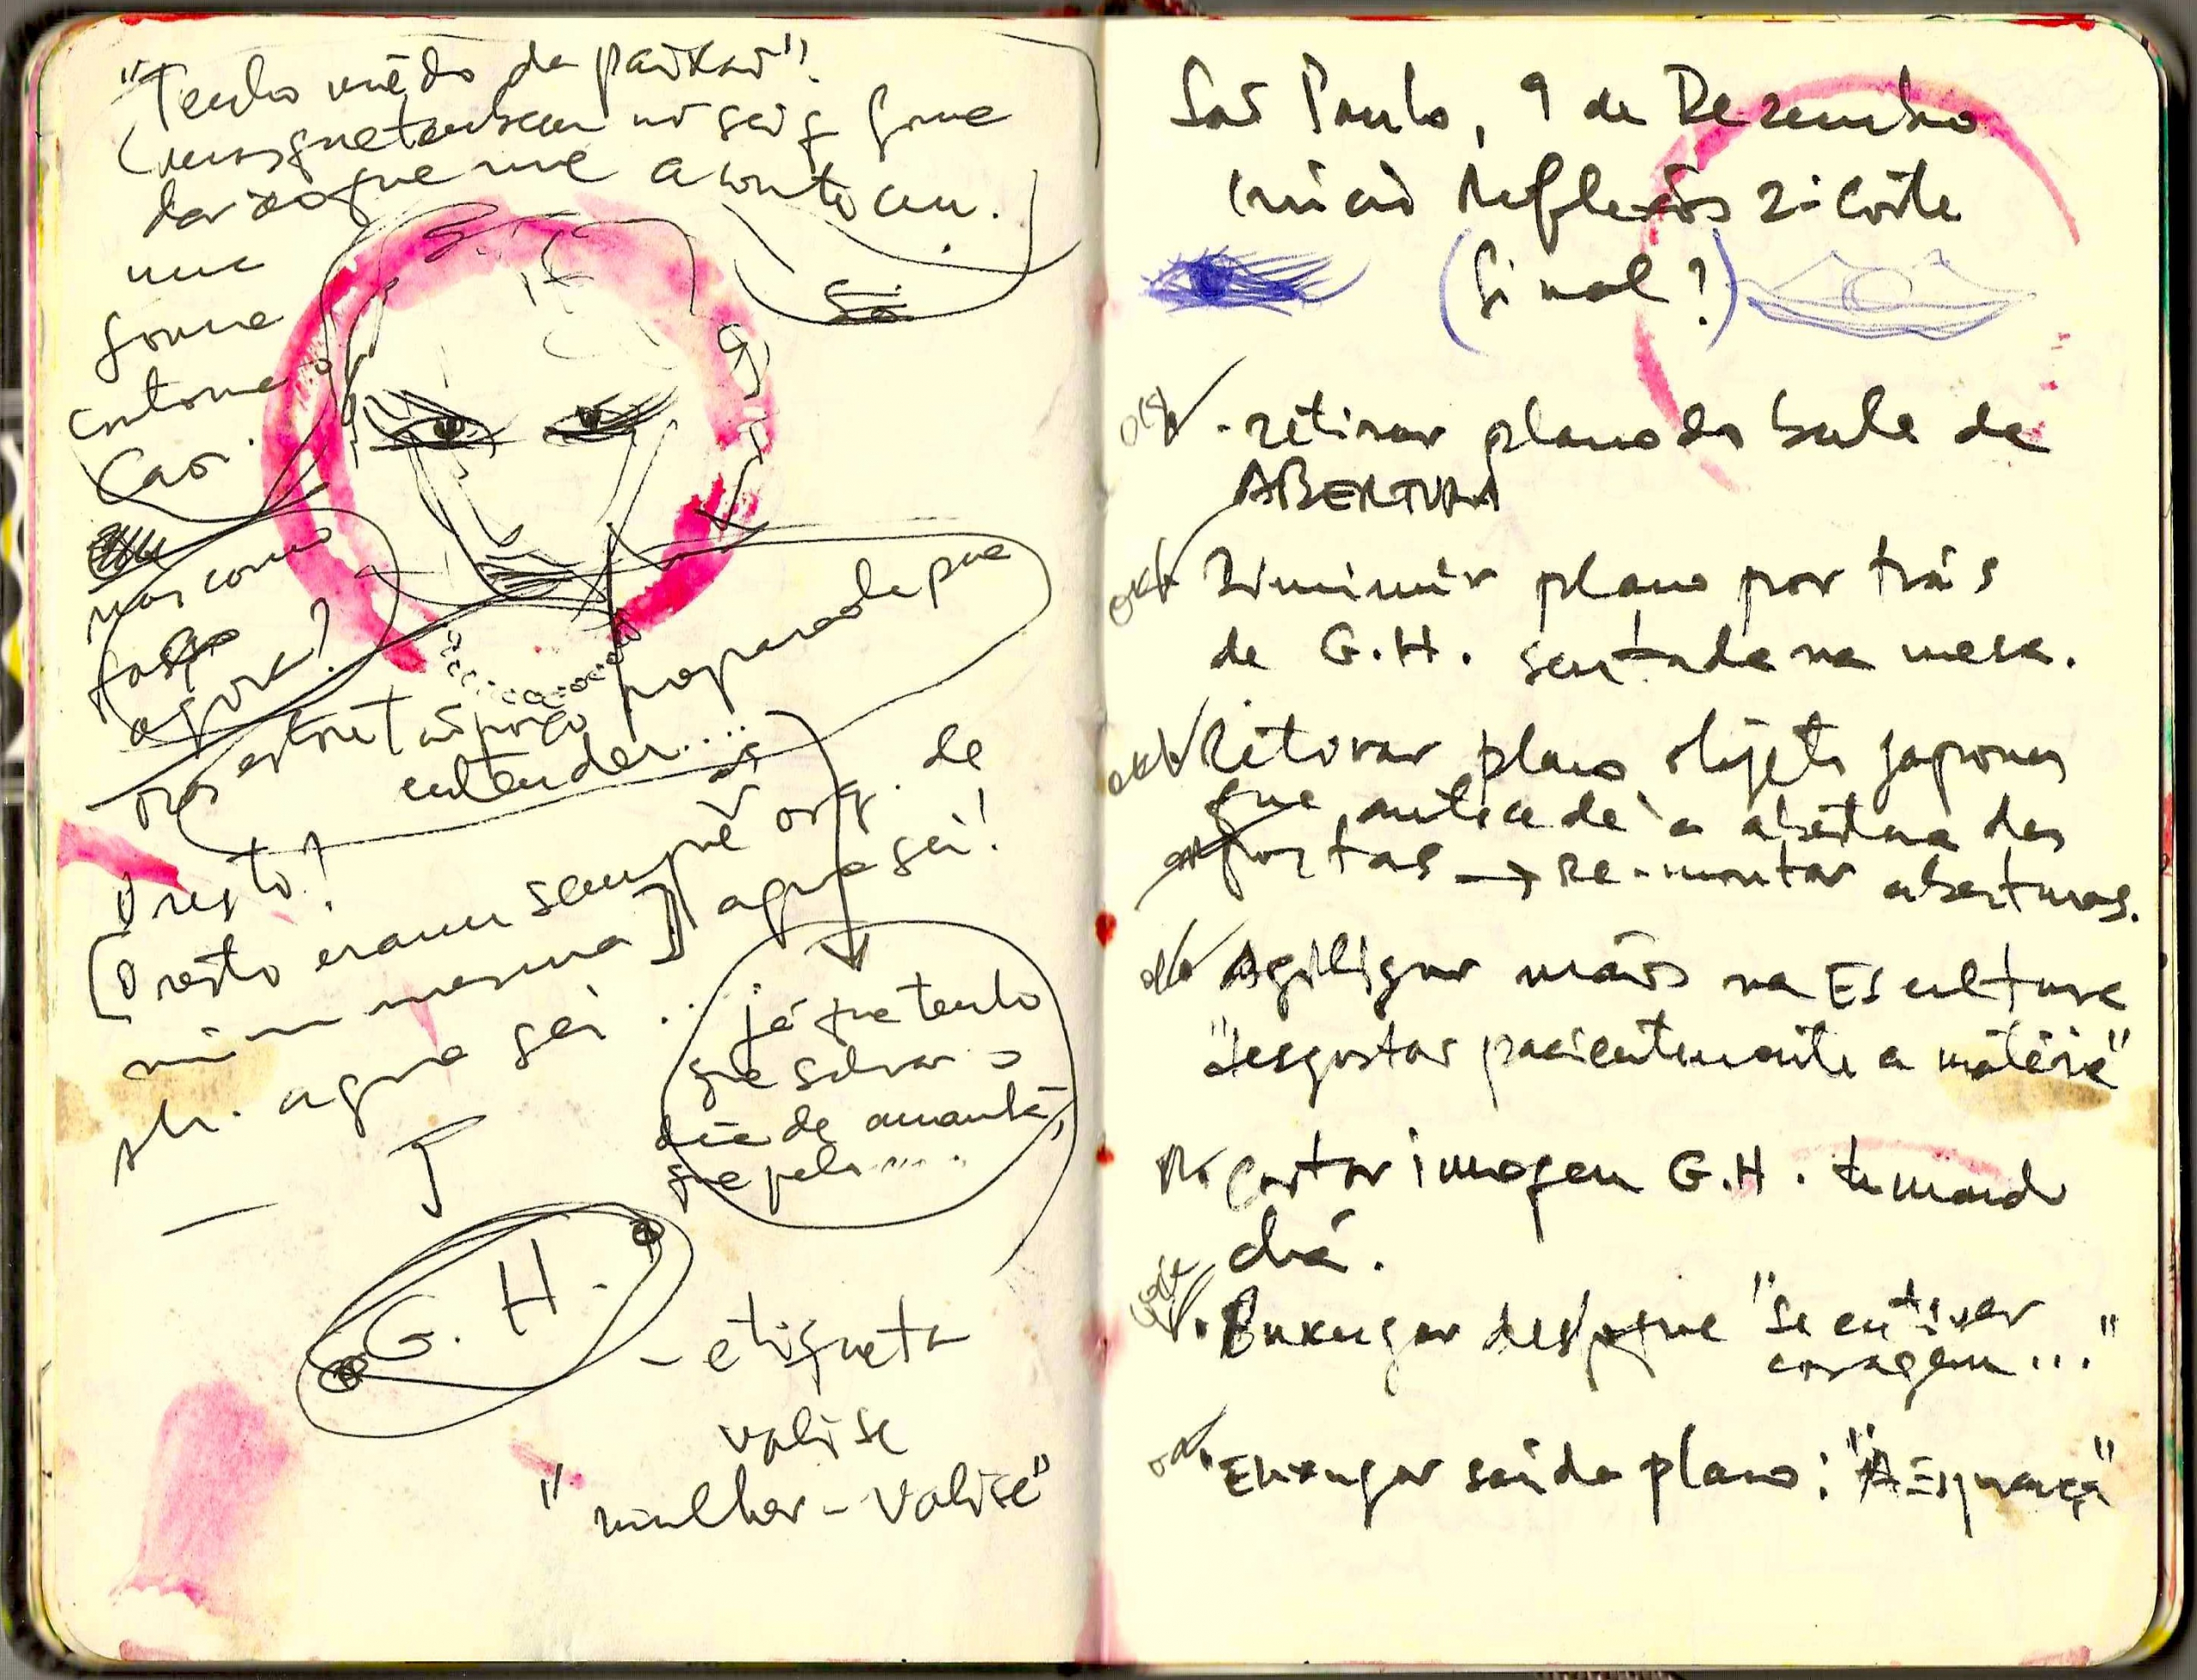 "Tenho mêdo da paixão".
(mas que tambem nõ sei q forma
dar ao que me aconteceu.
uma
forma
contorna o
caos.
mas como
faço
agora?
preparado pra
entender....
de
O resto!
[O resto eram sempre org.
mim mesma] agora sei!
agora sei ...
já que tenho
que salvar o
dia de amanhã,
que pelo ....
G. H.
- etiqueta
valise
"mulher-valise"
São Paulo, 9 de Dezembro
início reflexões 2º corte
(final?)
ok - retirar plano do bule de
ABERTURA
ok Diminuir plano por trás
de G.H. sentada na mesa.
ok Retirar plano objeto japones
que antecede à abertura das
portas → re-montar aberturas.
ok Agilizar mãos na Escultura
"desgastar pacientemente a matéria"
ok cortar imagem G.H. tomando
chá.
Enxugar desde que "se eu tiver
coragem ..."
ok. Enxugar saída plano: "A Esperança"